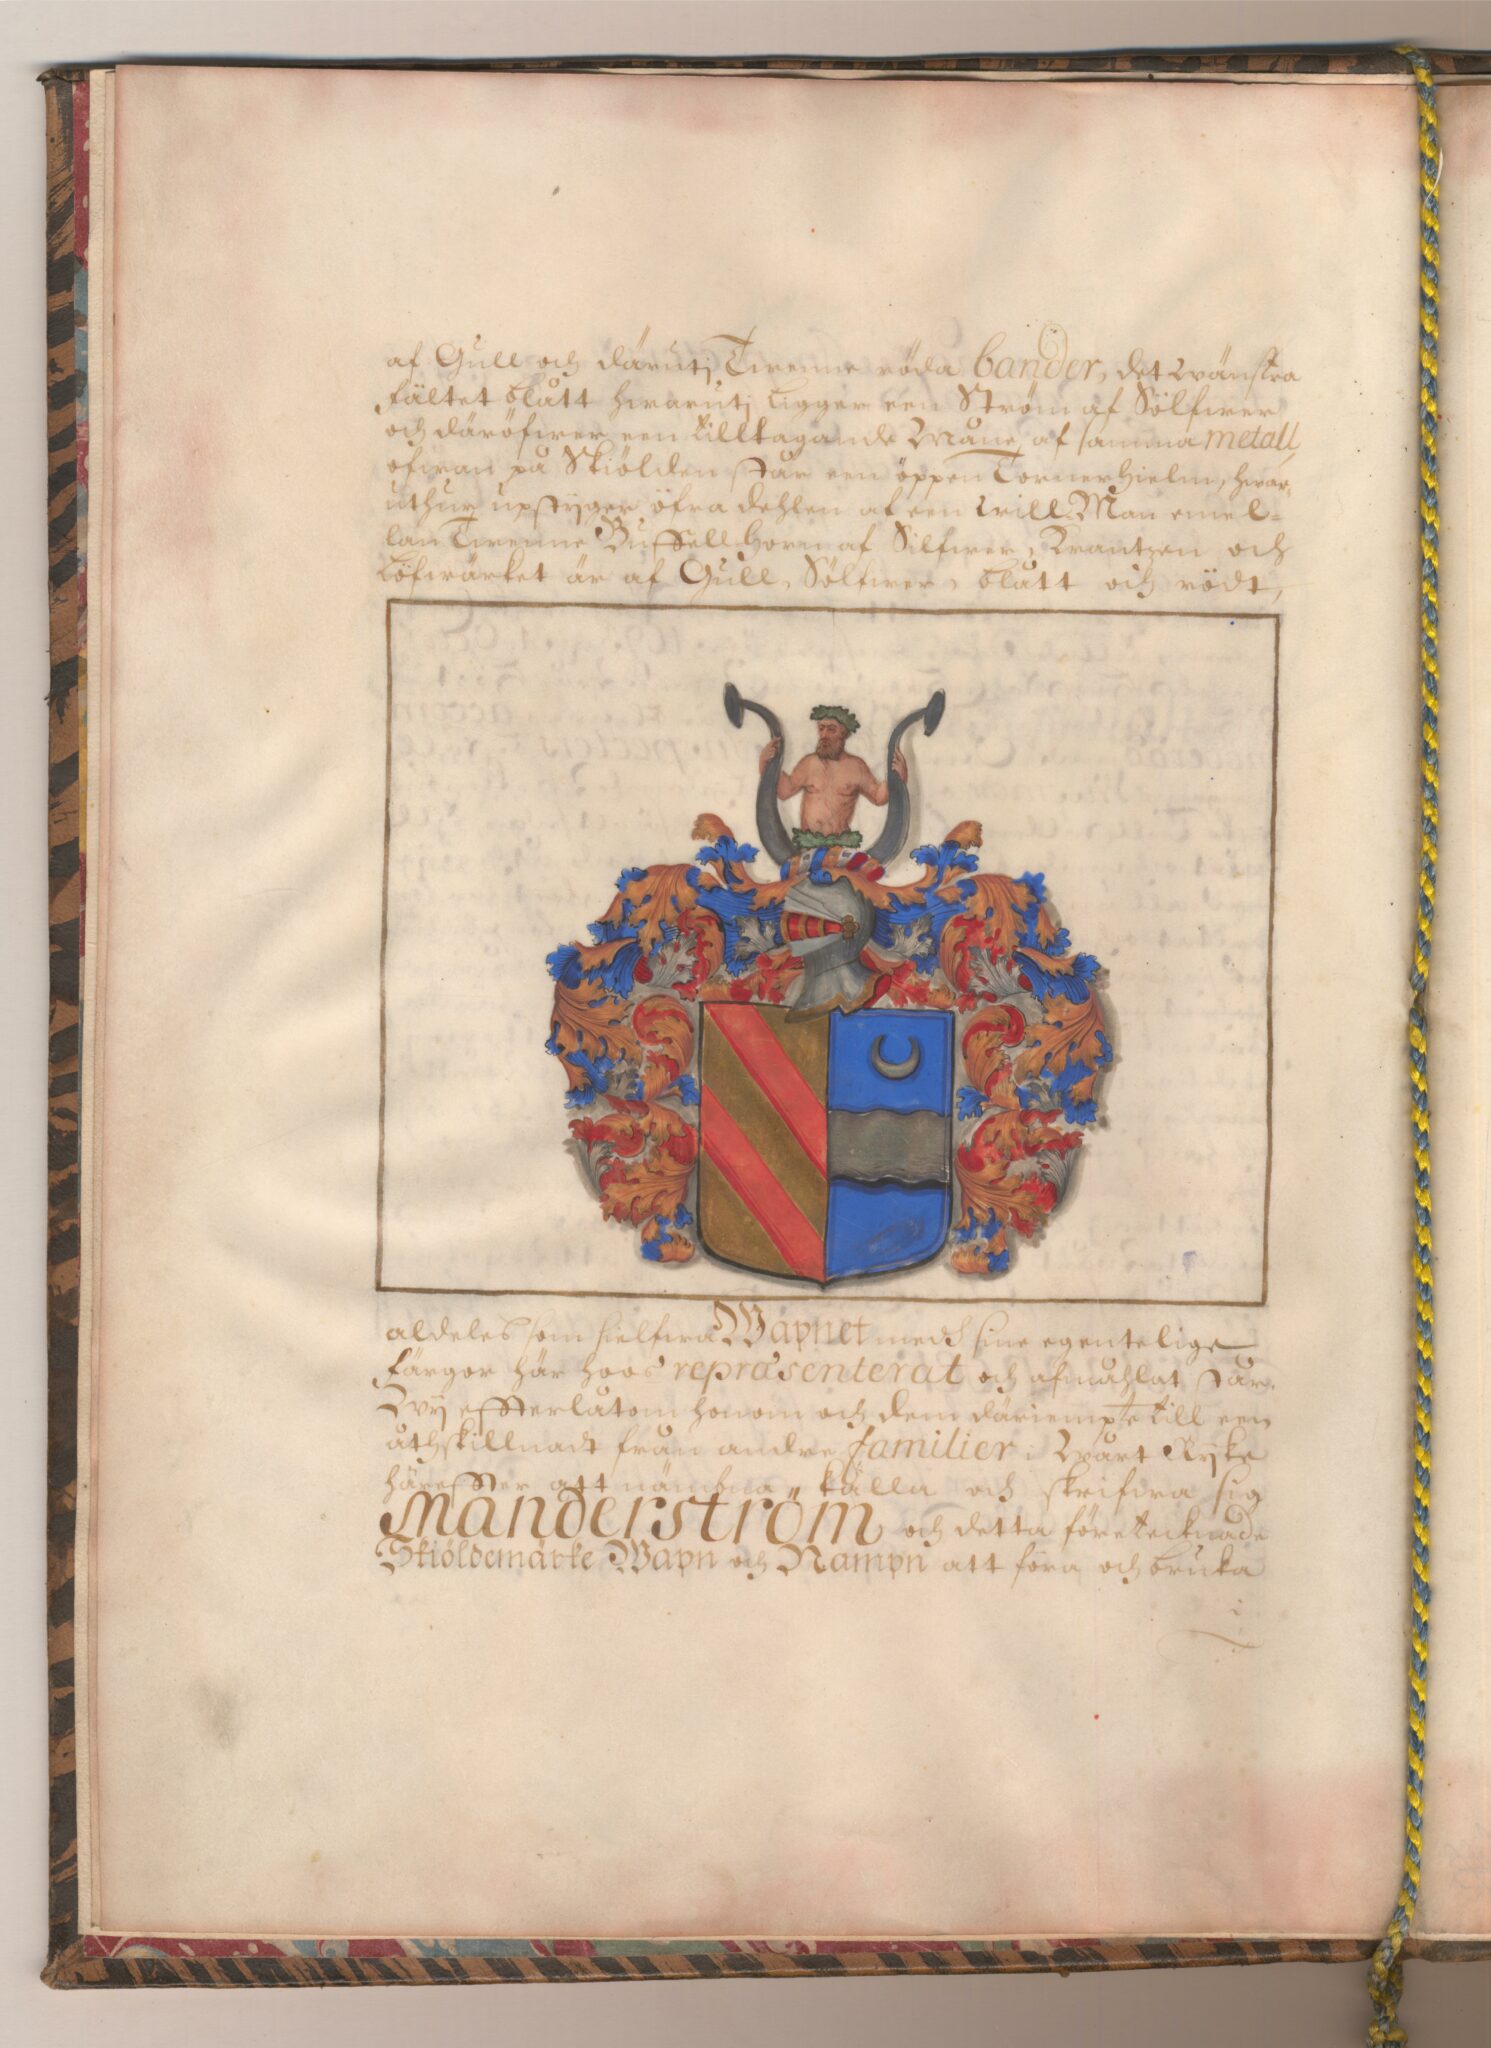 af Gull och därutj Tvenne röda bander, det Wänstra
fältet blått hwarutj ligger een Ström af Sölfwer
och däröfwer een tilltagande Måne af samma metall,
ofwan på Skiölden står een öppen Torner Hielm, hwar-
uthur upstijger öfra dehlen af een Will Man emel-
lan Twenne Buffell Horn af Silfwer, Krantzen och
Löfwärket är af Gull, Sölfwer, blått och rödt,
aldeles som sielfwa Wapnet medh sine egentelige
färgor här hoos repræsenterat och afmåhlat står.
Wij effterlåtom honom och dem däriempte till een
åthskillnadt från andre familier i Wårt Rijke
häreffter att nämbna, kalla och skrifwa sig
Manderström och detta företeknade
Skiöldemärke Wapn och Nampn att föra och bruka
i